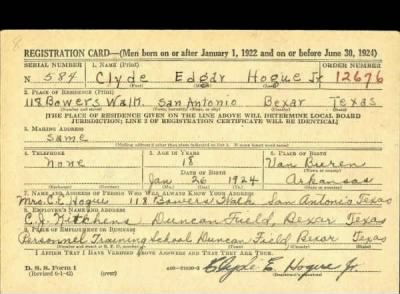 REGISTRATION CARD—(Men born on or after January 1, 1922 and on or before June 30, 1924)
SERIAL NUMBER 1. NAME (Print) ORDER NUMBER
N 584 Clyde Edgar Hogue Jr 12676
(First) (Middle) (Last)
2. PLACE OF RESIDENCE (Print)
118 Bowers Walk. San Antonio Bexar Texas
[THE PLACE OF RESIDENCE GIVEN ON THE LINE ABOVE WILL DETERMINE LOCAL BOARD
JURISDICTION; LINE 2 OF REGISTRATION CERTIFICATE WILL BE IDENTICAL]
3. MAILING ADDRESS
Same
4. TELEPHONE 5. AGE IN YEARS 6. PLACE OF BIRTH
None 18 Van Buren
DATE OF BIRTH
Jan 26 1924 Arkansas
7. NAME AND ADDRESS OF PERSON WHO WILL ALWAYS KNOW YOUR ADDRESS
Mrs. C.E. Hogue 118 Bowers Walk San Antonio Texas
8. EMPLOYER'S NAME AND ADDRESS
C. J. Duncan Field, Bexar Texas
9. PLACE OF EMPLOYMENT OR BUSINESS
Personnel Training School Duncan Field Bexar Texas
I AFFIRM THAT I HAVE VERIFIED ABOVE ANSWERS AND THAT THEY ARE TRUE.
D. S. S. Form 1
(Revised 6-1-42) (over) Clyde E. Hogue Jr.